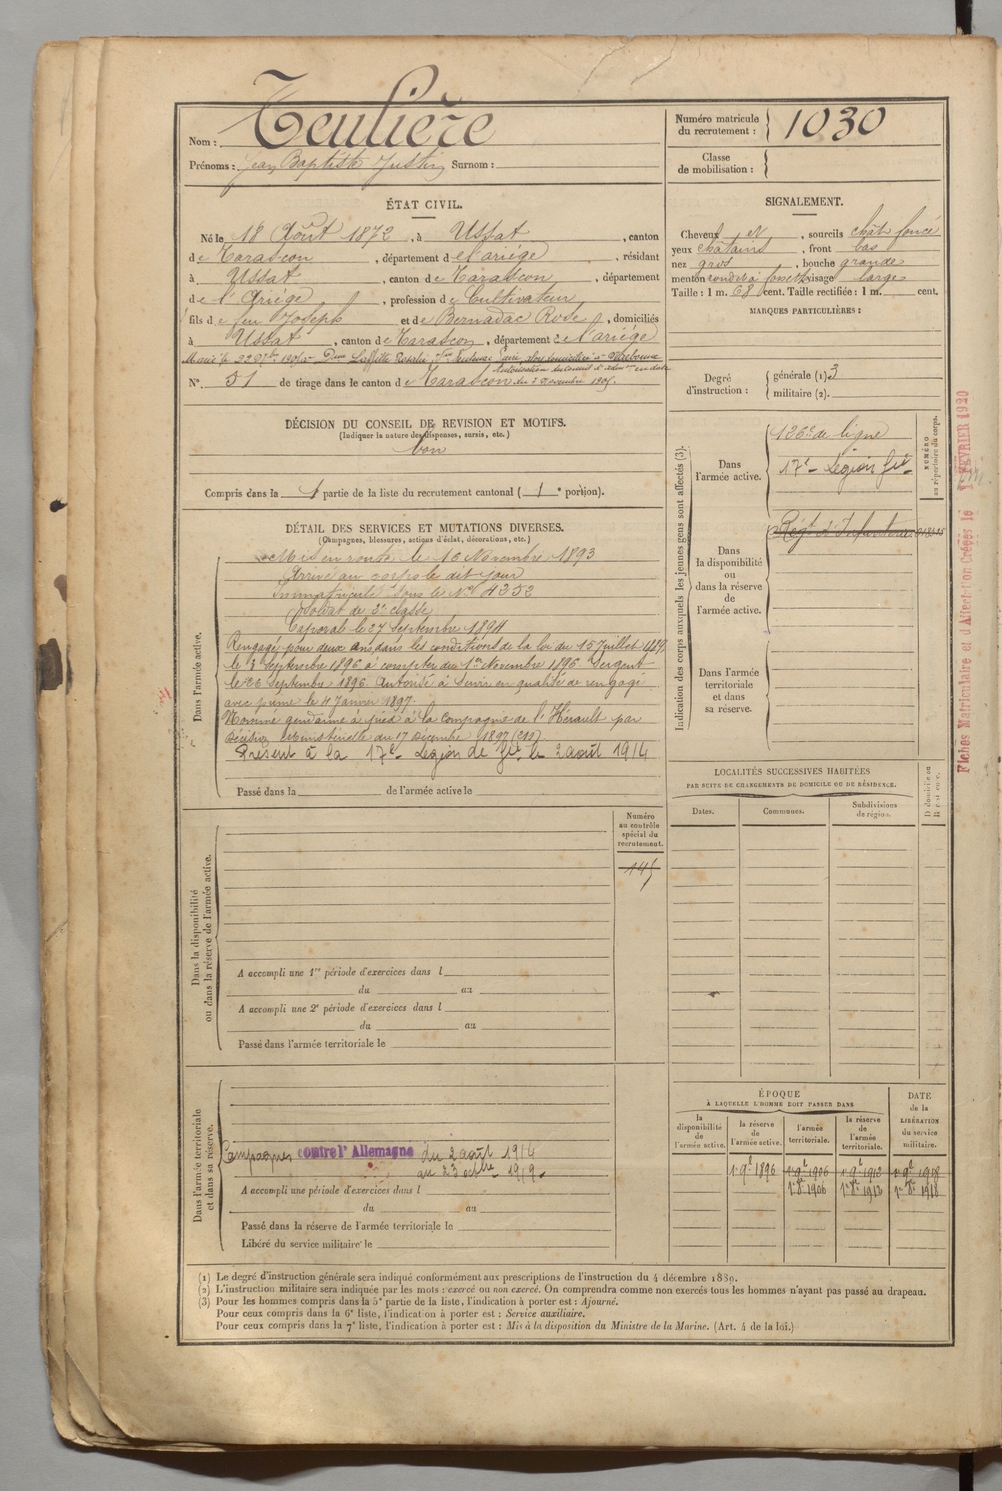 Nom : Teulière
Prénoms : Jean Baptiste Justin Surnom :
Numéro matricule du recrutement : 1030
Classe de mobilisation :
ÉTAT CIVIL.
Né le 18 Août 1872, à Ussat, canton
de Tarascon, département de l'ariége, résidant
à Ussat, canton de Tarascon, département
de l'Ariége, profession de Cultivateur
fils de feu Joseph et de Bernadac Rose, domiciliés
à Ussat, canton de Tarascon, département de l'ariége
Marié le 22
N° 51 de tirage dans le canton de Tarascon
SIGNALEMENT.
Cheveux et, sourcils chât foncé
yeux chatains, front bas
nez gros, bouche grande
menton visage large
Taille : 1 m. 68 cent. Taille rectifiée : 1 m. cent.
MARQUES PARTICULIÈRES :
Degré d'instruction : générale (1) 3
militaire (2).
DÉCISION DU CONSEIL DE REVISION ET MOTIFS.
(Indiquer la nature des dispenses, sursis, etc.)
bon
Compris dans la 1 partie de la liste du recrutement cantonal ( 1e portion).
DÉTAIL DES SERVICES ET MUTATIONS DIVERSES.
(Campagnes, blessures, actions d'éclat, décorations, etc.)
Dans l'armée active.
Mis en route le 16 Novembre 1893
Arrivé au corps le dit jour
Immatriculé sous le N° 4352
Soldat de 2e classe
Caporal le 27 Septembre 1894
Rengagé pour deux ans dans les conditions de la loi du 15 Juillet 1889
le 3 Septembre 1896 à compter du 1er Novembre 1896 Sergent
le 26 Septembre 1896 Autorisé à servir en qualité de rengagé
avec prime le 11 Janvier 1897.
Nommé gendarme à pied à la Compagnie de l'Hérault par
décision Ministérielle du 17 Décembre 1897
Présent à la 17e Légion de Gie le 2 août 1914
Passé dans la de l'armée active le
Indication des corps auxquels les jeunes gens sont affectés (3).
Dans l'armée active.
126e de ligne
17e Légion Gie
NUMÉRO au répertoire du corps.
Dans la disponibilité ou dans la réserve de l'armée active.
Régt d'Infanterie
Dans l'armée territoriale et dans sa réserve.
Fiches Matriculaire et d'Affectation Créées le 1 FÉVRIER 1920
LOCALITÉS SUCCESSIVES HABITÉES
PAR SUITE DE CHANGEMENTS DE DOMICILE OU DE RÉSIDENCE.
Dates. Communes. Subdivisions de région. D domicile ou R résidence.
Numéro au contrôle spécial du recrutement.
145
Dans la disponibilité ou dans la réserve de l'armée active.
A accompli une 1re période d'exercices dans l
du au
A accompli une 2e période d'exercices dans l
du au
Passé dans l'armée territoriale le
Dans l'armée territoriale et dans sa réserve.
Campagnes contre l'Allemagne du 2 août 1914
au 23 octbre 1919.
A accompli une période d'exercices dans l
du au
Passé dans la réserve de l'armée territoriale le
Libéré du service militaire le
ÉPOQUE
À LAQUELLE L'HOMME DOIT PASSER DANS
la disponibilité de l'armée active. la réserve de l'armée active. l'armée territoriale. la réserve de l'armée territoriale.
DATE de la LIBÉRATION du service militaire.
1896 1906 1912 1918
1906 1913 1918
(1) Le degré d'instruction générale sera indiqué conformément aux prescriptions de l'instruction du 4 décembre 1889.
(2) L'instruction militaire sera indiquée par les mots : exercé ou non exercé. On comprendra comme non exercés tous les hommes n'ayant pas passé au drapeau.
(3) Pour les hommes compris dans la 5e partie de la liste, l'indication à porter est : Ajourné.
Pour ceux compris dans la 6e liste, l'indication à porter est : Service auxiliaire.
Pour ceux compris dans la 7e liste, l'indication à porter est : Mis à la disposition du Ministre de la Marine. (Art. 4 de la loi.)